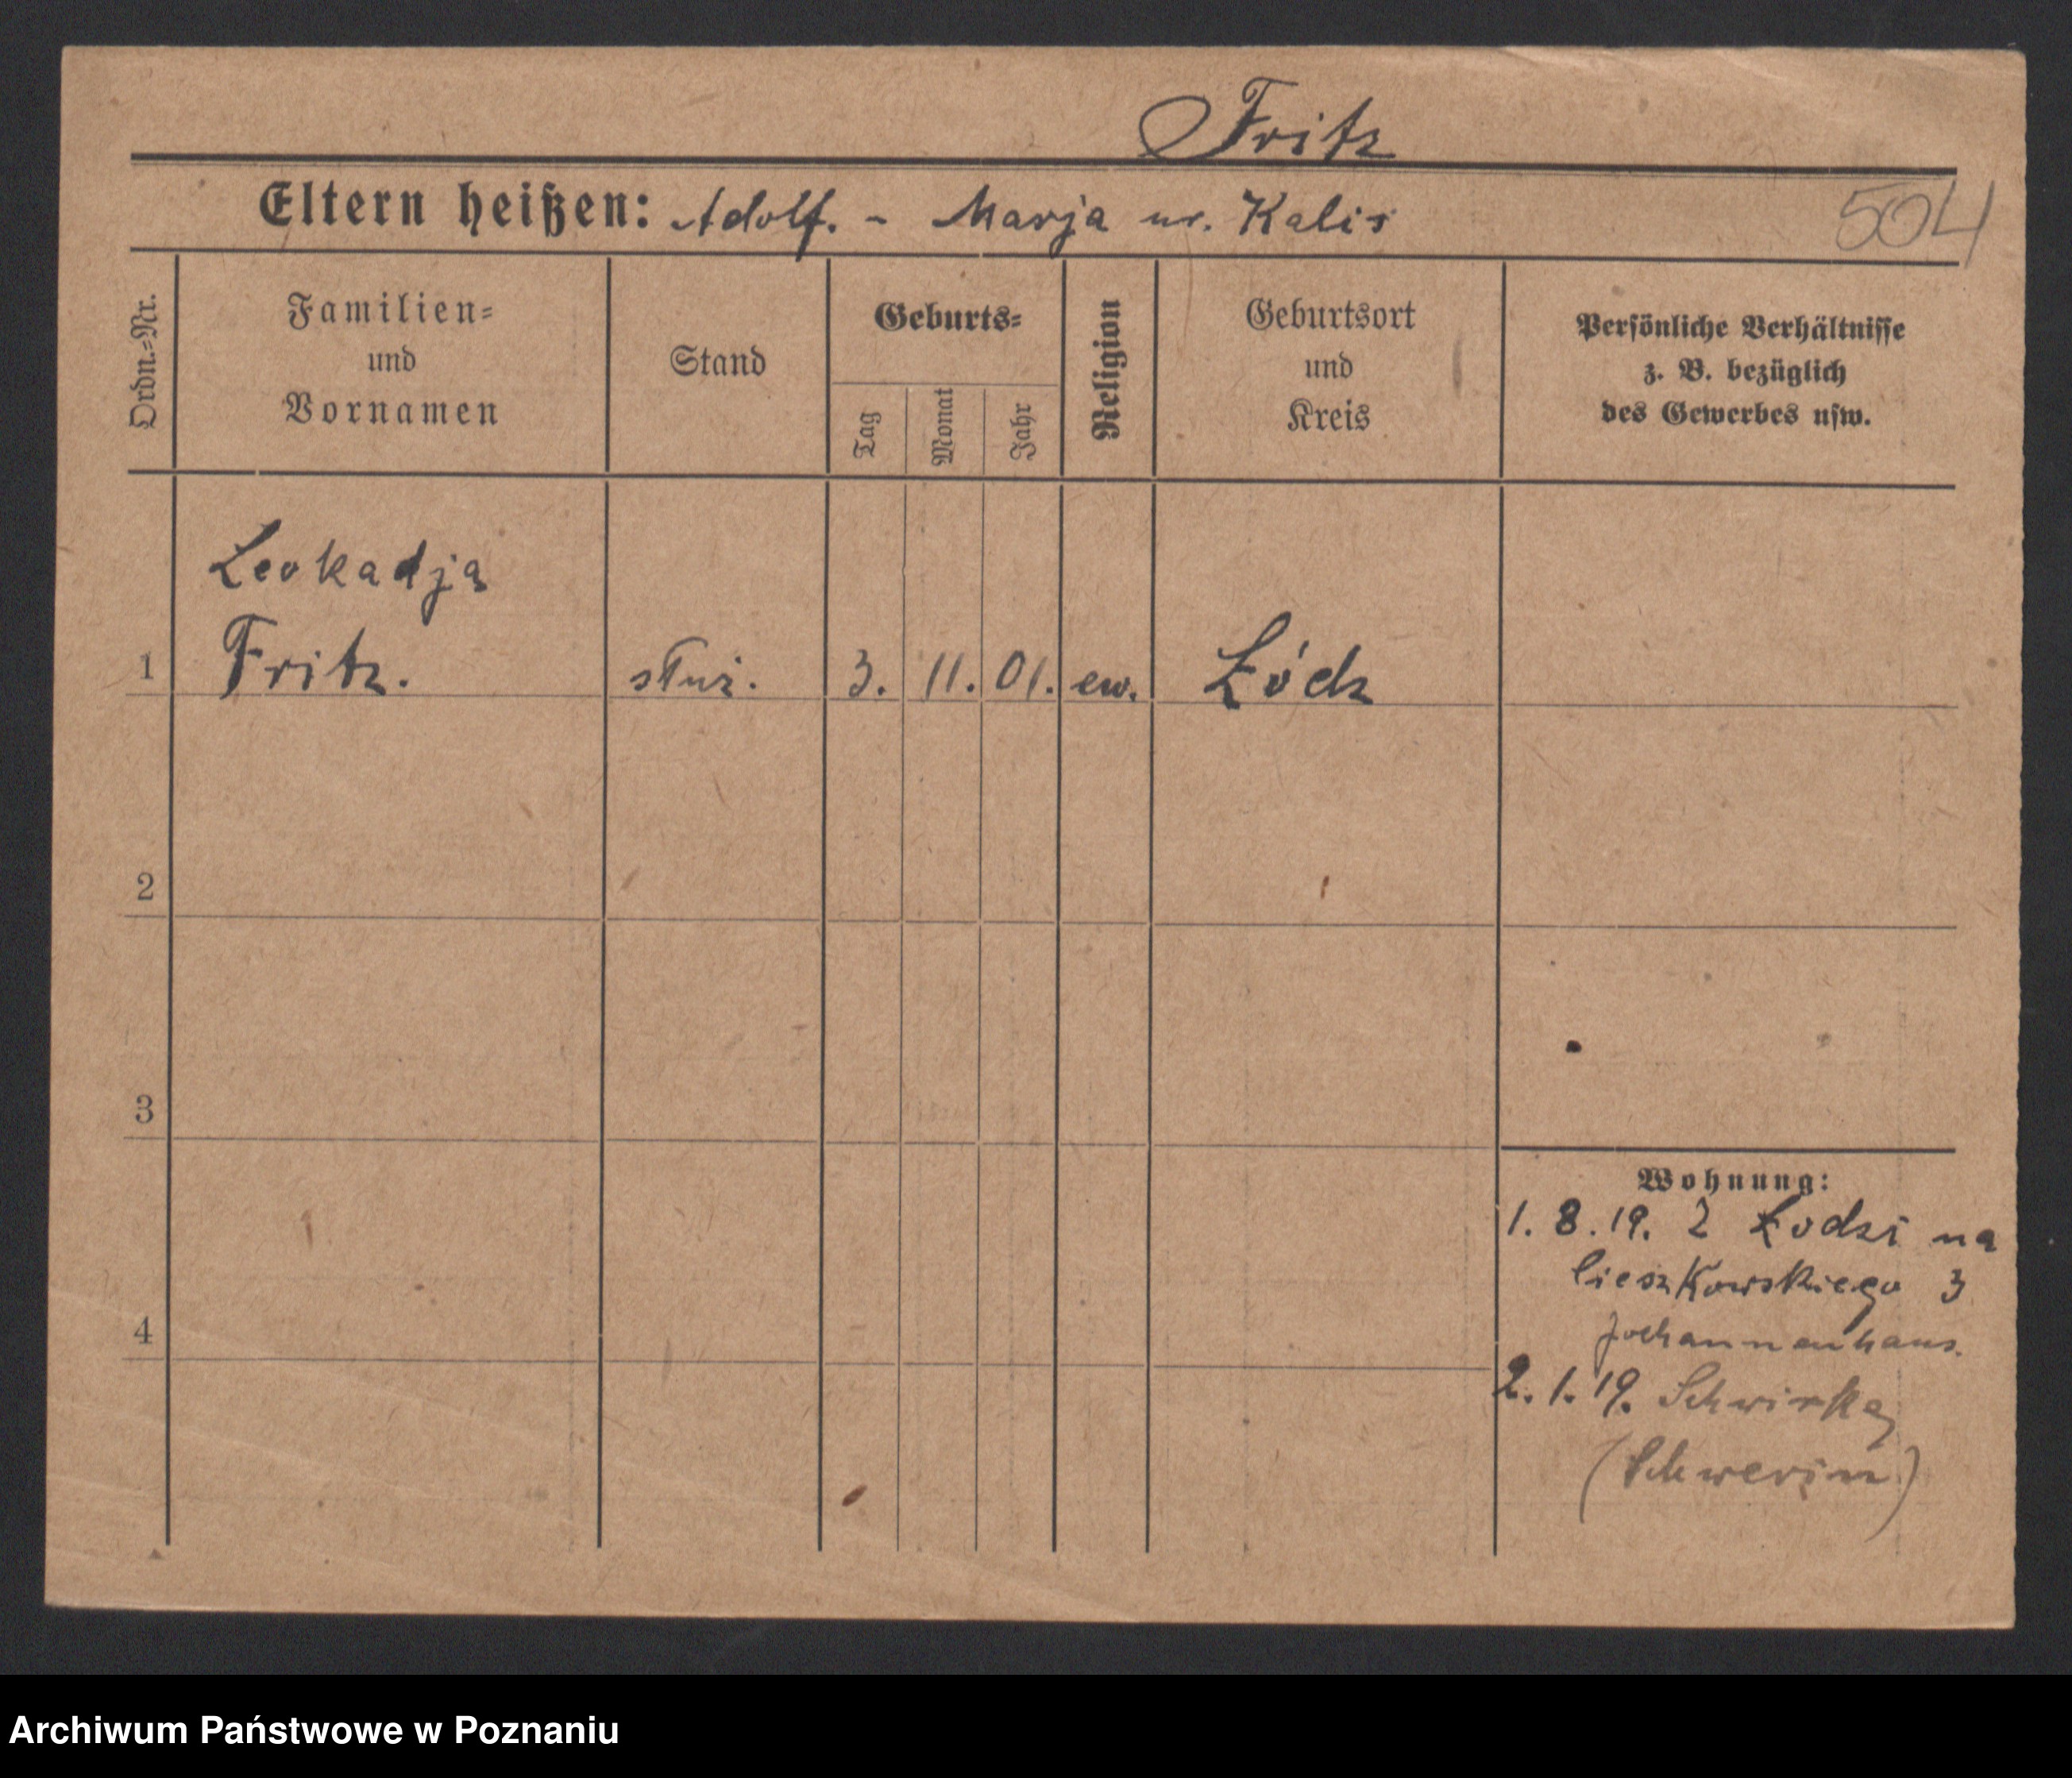 Fritz
Eltern heißen: Adolf. - Marja ur. Kalis
504
Ordn.=Nr.
Familien=
und
Vornamen
Stand
Geburts=
Tag
Monat
Jahr
Religion
Geburtsort
und
Kreis
Persönliche Verhältnisse
z. B. bezüglich
des Gewerbes usw.
Leokadja
1 Fritz. służ. 3. 11. 01. ew. Łódz
2
3
4
Wohnung:
1. 8. 19. Z Łodzi na
Cieszkowskiego 3
Johannenhaus.
2. 1. 19.
(Schwerin)
Archiwum Państwowe w Poznaniu